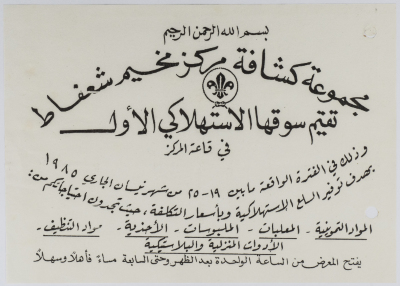 بسم الله الرحمن الرحيم
مجموعة كشافة مركز مخيم شعفاط
تقيم سوقها الاستهلاكي الأول
في قاعة المركز
وذلك في الفترة الواقعة ما بين ١٩-٢٥ من شهر نيسان الجاري ١٩٨٥
بهدف توفير السلع الاستهلاكية وبأسعار التكلفة، حيث تجدون احتياجاتكم من:
المواد التموينية - المعلبات - الملبوسات - الأحذية - مواد التنظيف -
الأدوات المنزلية والبلاستيكية
يفتح المعرض من الساعة الواحدة بعد الظهر وحتى السابعة مساءً فأهلاً وسهلاً